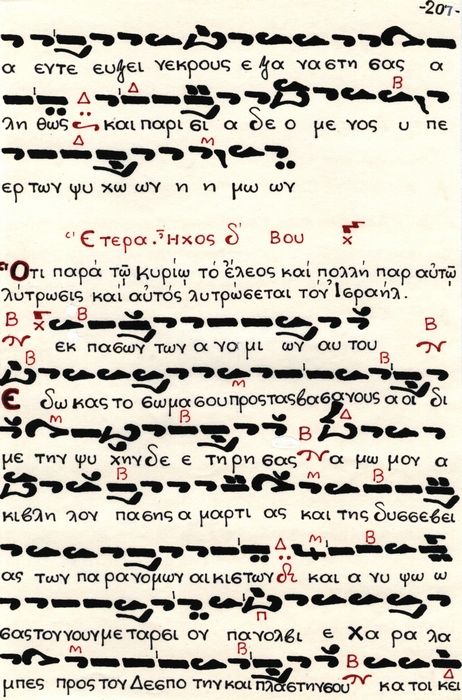 -207-
α εντε ευξει νεκρους ε ξα ναστη σας α
λη θως και παρι σι α δε ο με νος υ πε
ερ των ψυ χω ων η η μω ων
Ἕτερα. Ἦχος δ΄ Βου
Ὅτι παρὰ τῷ Κυρίῳ τὸ ἔλεος καὶ πολλὴ παρ αὐτῷ
λύτρωσις καὶ αὐτὸς λυτρώσεται τὸν Ἰσραήλ.
εκ πασων των α νο μι ων αυ του
Ε δω κας το σωμα σου προς τας βασανους α οι δι
με την ψυ χην δε ε τη ρη σας α μω μον α
κιβλη λον πασης α μαρτι ας και της δυσσεβει
ας των παρανομων αικιστων και α νυ ψω ω
σας τον νουν με ταρσι ον πανολβι ε Χα ρα λα
μπες προς τον Δεσπο την και πλαστην σου κα τοι κει